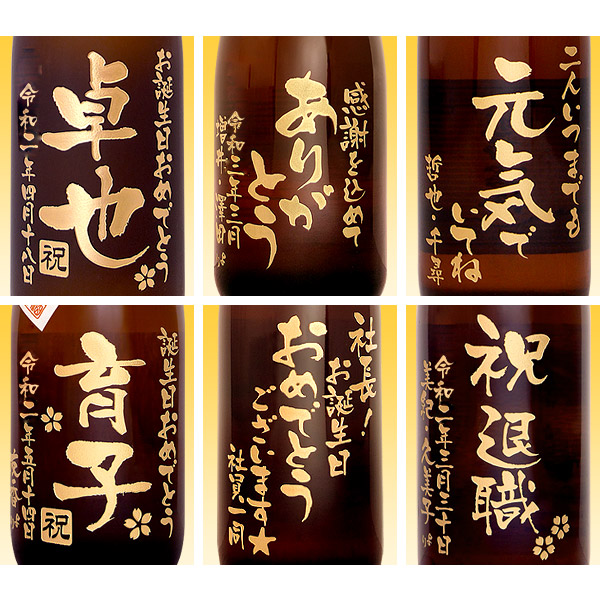 お誕生日おめでとう
卓也
令和二年四月十八日
祝
感謝を込めて
ありがとう
令和三年三月
増井・澤田より
二人いつまでも
元気で
いてね
哲也・千尋
誕生日おめでとう
育子
令和二年五月十四日
祝
社長!
お誕生日
おめでとう
ございます★
社員一同
祝退職
令和二年三月三十日
美紀・久美子より